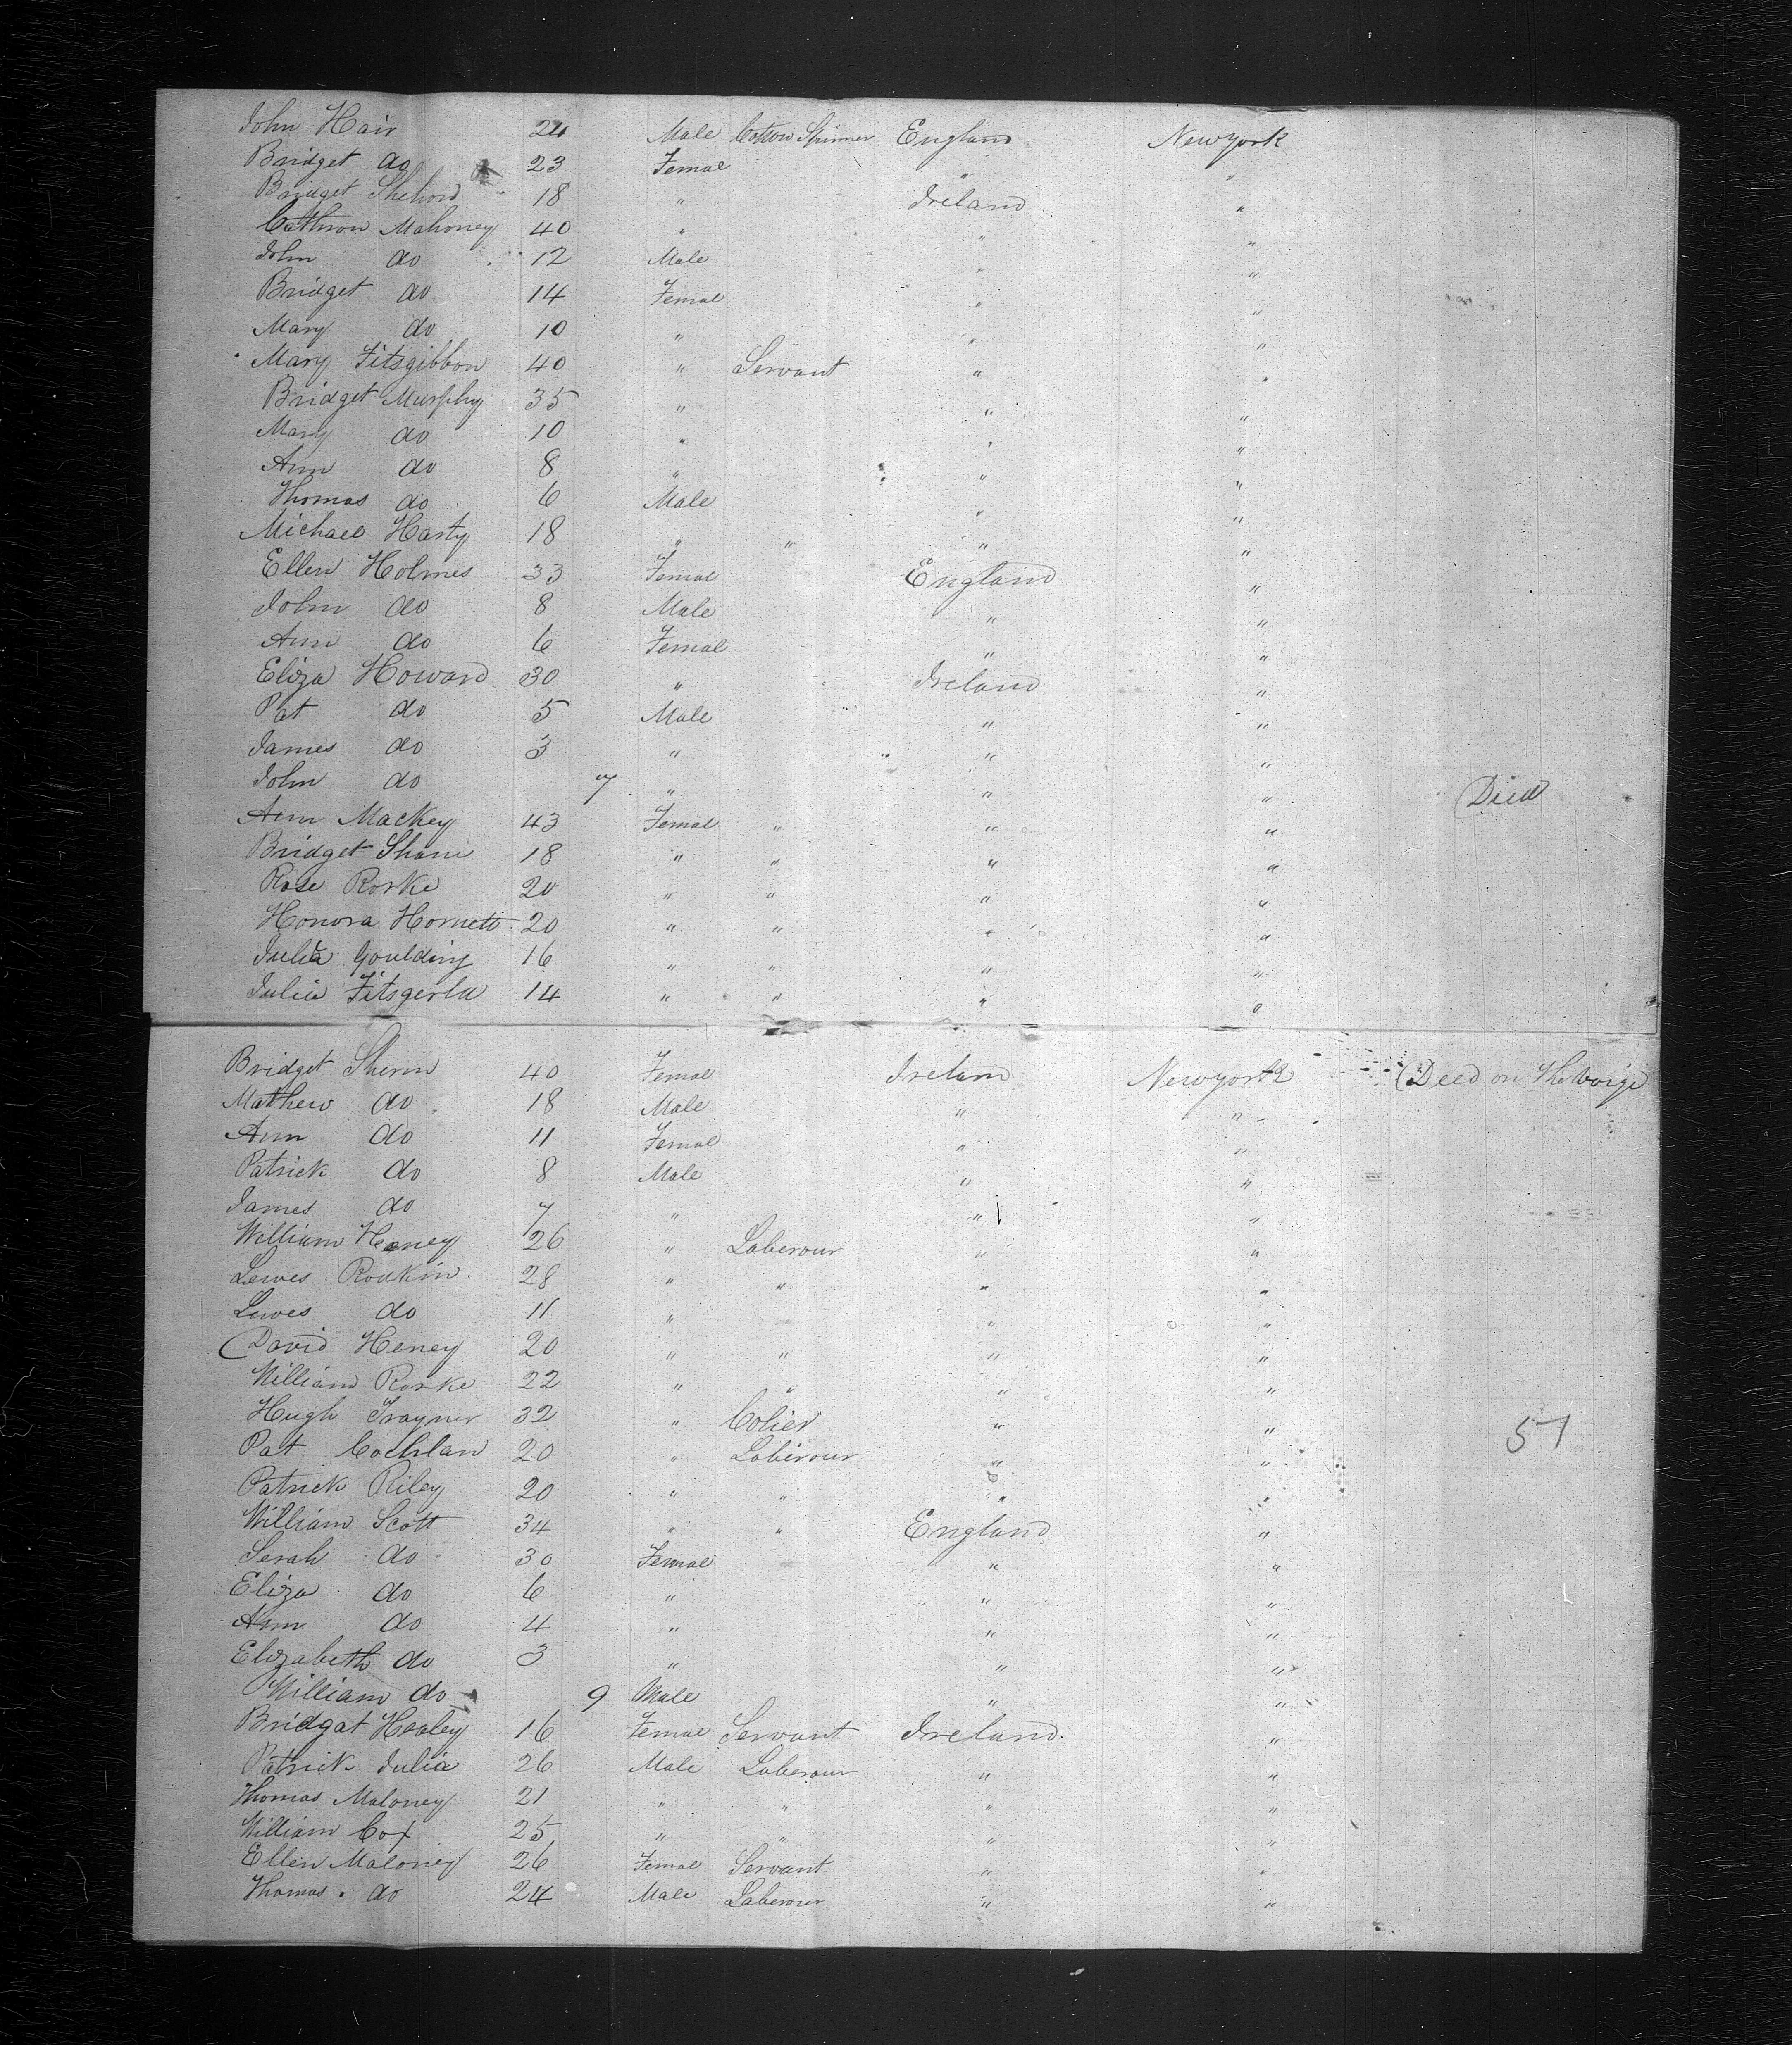 John Hair 24 Male Cotton Spinner England New york
Bridget do 23 Femal " "
Bridget Shehon 18 " Ireland "
Cathron Mahoney 40 " " "
John do 12 Male " "
Bridget do 14 Femal " "
Mary do 10 " " "
Mary Fitsgibbon 40 " Servant " "
Bridget Murphy 35 " " "
Mary do 10 " " "
Ann do 8 " " "
Thomas do 6 Male " "
Michael Harty 18 " " " "
Ellen Holmes 33 Femal England "
John do 8 Male " "
Ann do 6 Femal " "
Eliza Howard 30 " Ireland "
Pat do 5 Male " "
James do 3 " " "
John do 7 " " " Died
Ann Mackey 43 Femal " " "
Bridget Shane 18 " " " "
Rose Rorke 20 " " " "
Honora Hornett 20 " " " "
Julia Goulding 16 " " " "
Julia Fitsgerld 14 " " " "
Bridget Sherin 40 Femal Ireland New york Deed on The Voige
Mathew do 18 Male " "
Ann do 11 Femal " "
Patrick do 8 Male " "
James do 7 " " "
William Heney 26 " Laberour " "
Lewes Roukin 28 " " " "
Lewes do 11 " " "
David Heney 20 " " " "
William Rorke 22 " " " "
Hugh Trayner 32 " Colier " "
57
Pat Cochlan 20 " Laberour " "
Patrick Riley 20 " " " "
William Scott 34 " " England "
Serah do 30 Femal " "
Eliza do 6 " " "
Ann do 4 " " "
Elizabeth do 3 " " "
William do 9 Male " "
Bridgat Healey 16 Femal Servant Ireland "
Patrick Julia 26 Male Laberour " "
Thomas Maloney 21 " " " "
William Cox 25 " " " "
Ellen Maloney 26 Femal Servant " "
Thomas do 24 Male Laberour " "